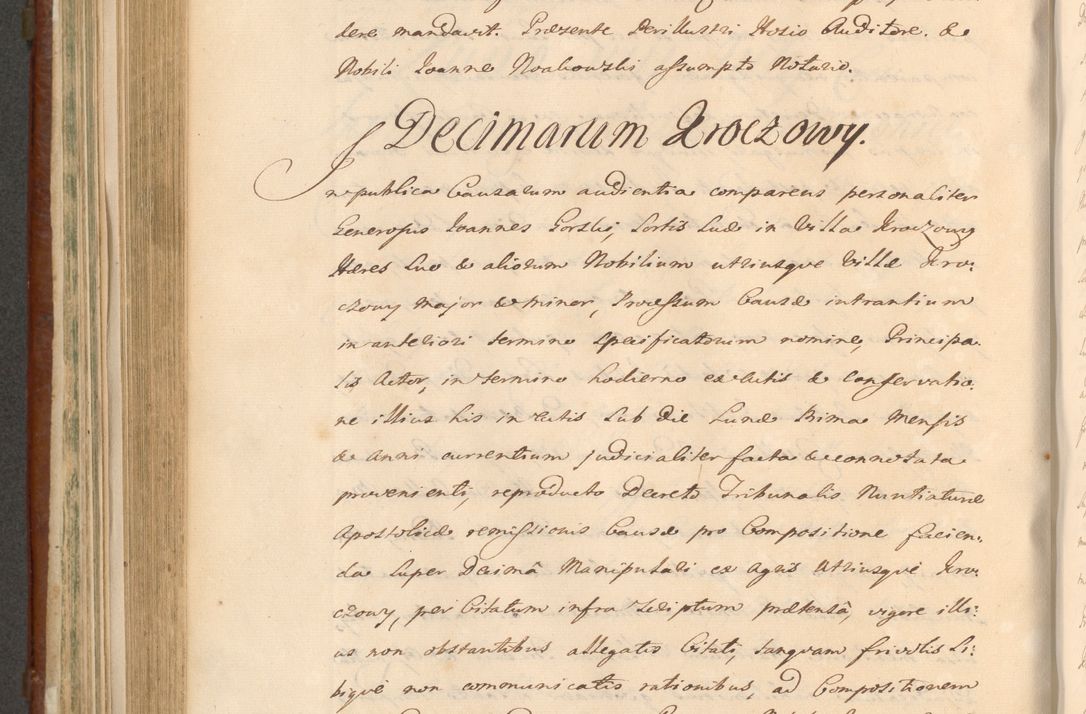 dere mandavit. Præsente Perillustri Hosio Auditore. &
Nobili Joanne Noakowski assumpto Notario.
Decimarum Kroczowy.
In publica Causarum audientia comparens personaliter
Generosus Joannes Gorski, Sortis Suæ in Villa Kroczowy
Hæres Suo & aliorum Nobilium utriusque Villæ Kro:
czowy major & minor, Processum Causæ intrantium
in anteriori termino Specificatorum nomine, Principa
lis Actor, in termino hodierno ex Actis & Conservatio:
ne illius his in Actis Sub Die Lunæ Prima Mensis
& Anni currentium judicialiter facta & connotata
provenienti, reproducto Decreto Tribunalis Nuntiaturæ
Apostolicæ remissionis Causæ pro Compositione facien:
da Super Decimâ Manipulari ex Agris Utriusque Kro:
czowy, per Citatum infra Scriptum prætensâ, vigore illi:
us non obstantibus allegatis Citati, tanquam frivolis Si:
bique non communicatis rationibus, ad Compositionem